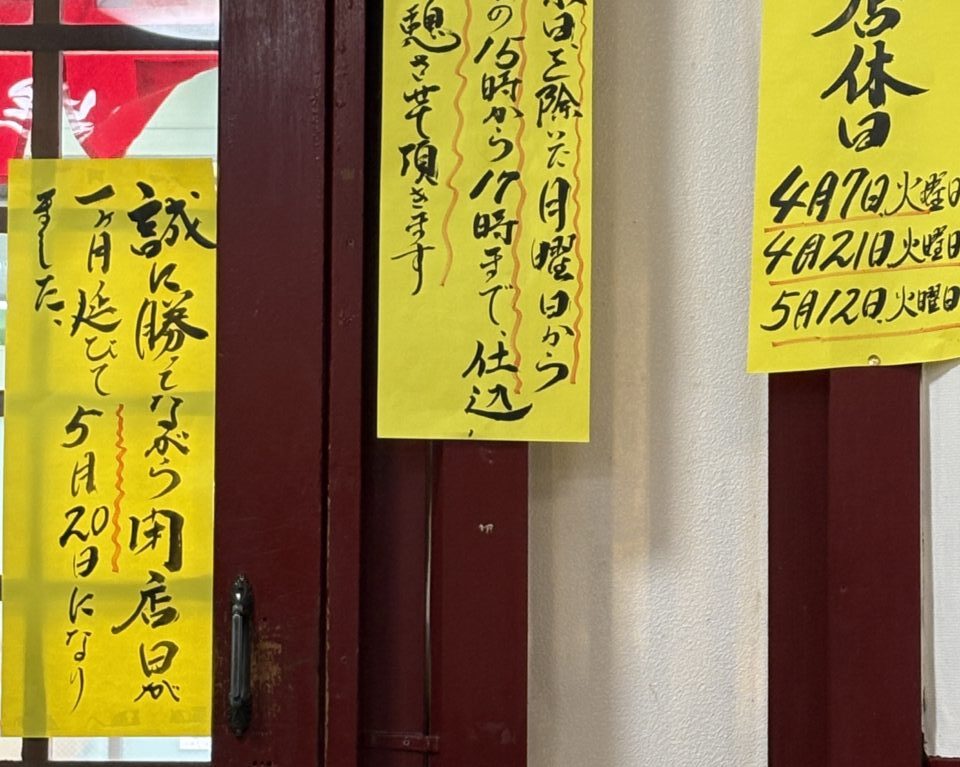 店休日
4月7日.火曜日
4月21日.火曜日
5月12日.火曜日
日を除いた月曜日から
の15時から17時まで、仕込、
憩させて頂きます
誠に勝手ながら閉店日が
一ヶ月延びて5月20日になり
ました、